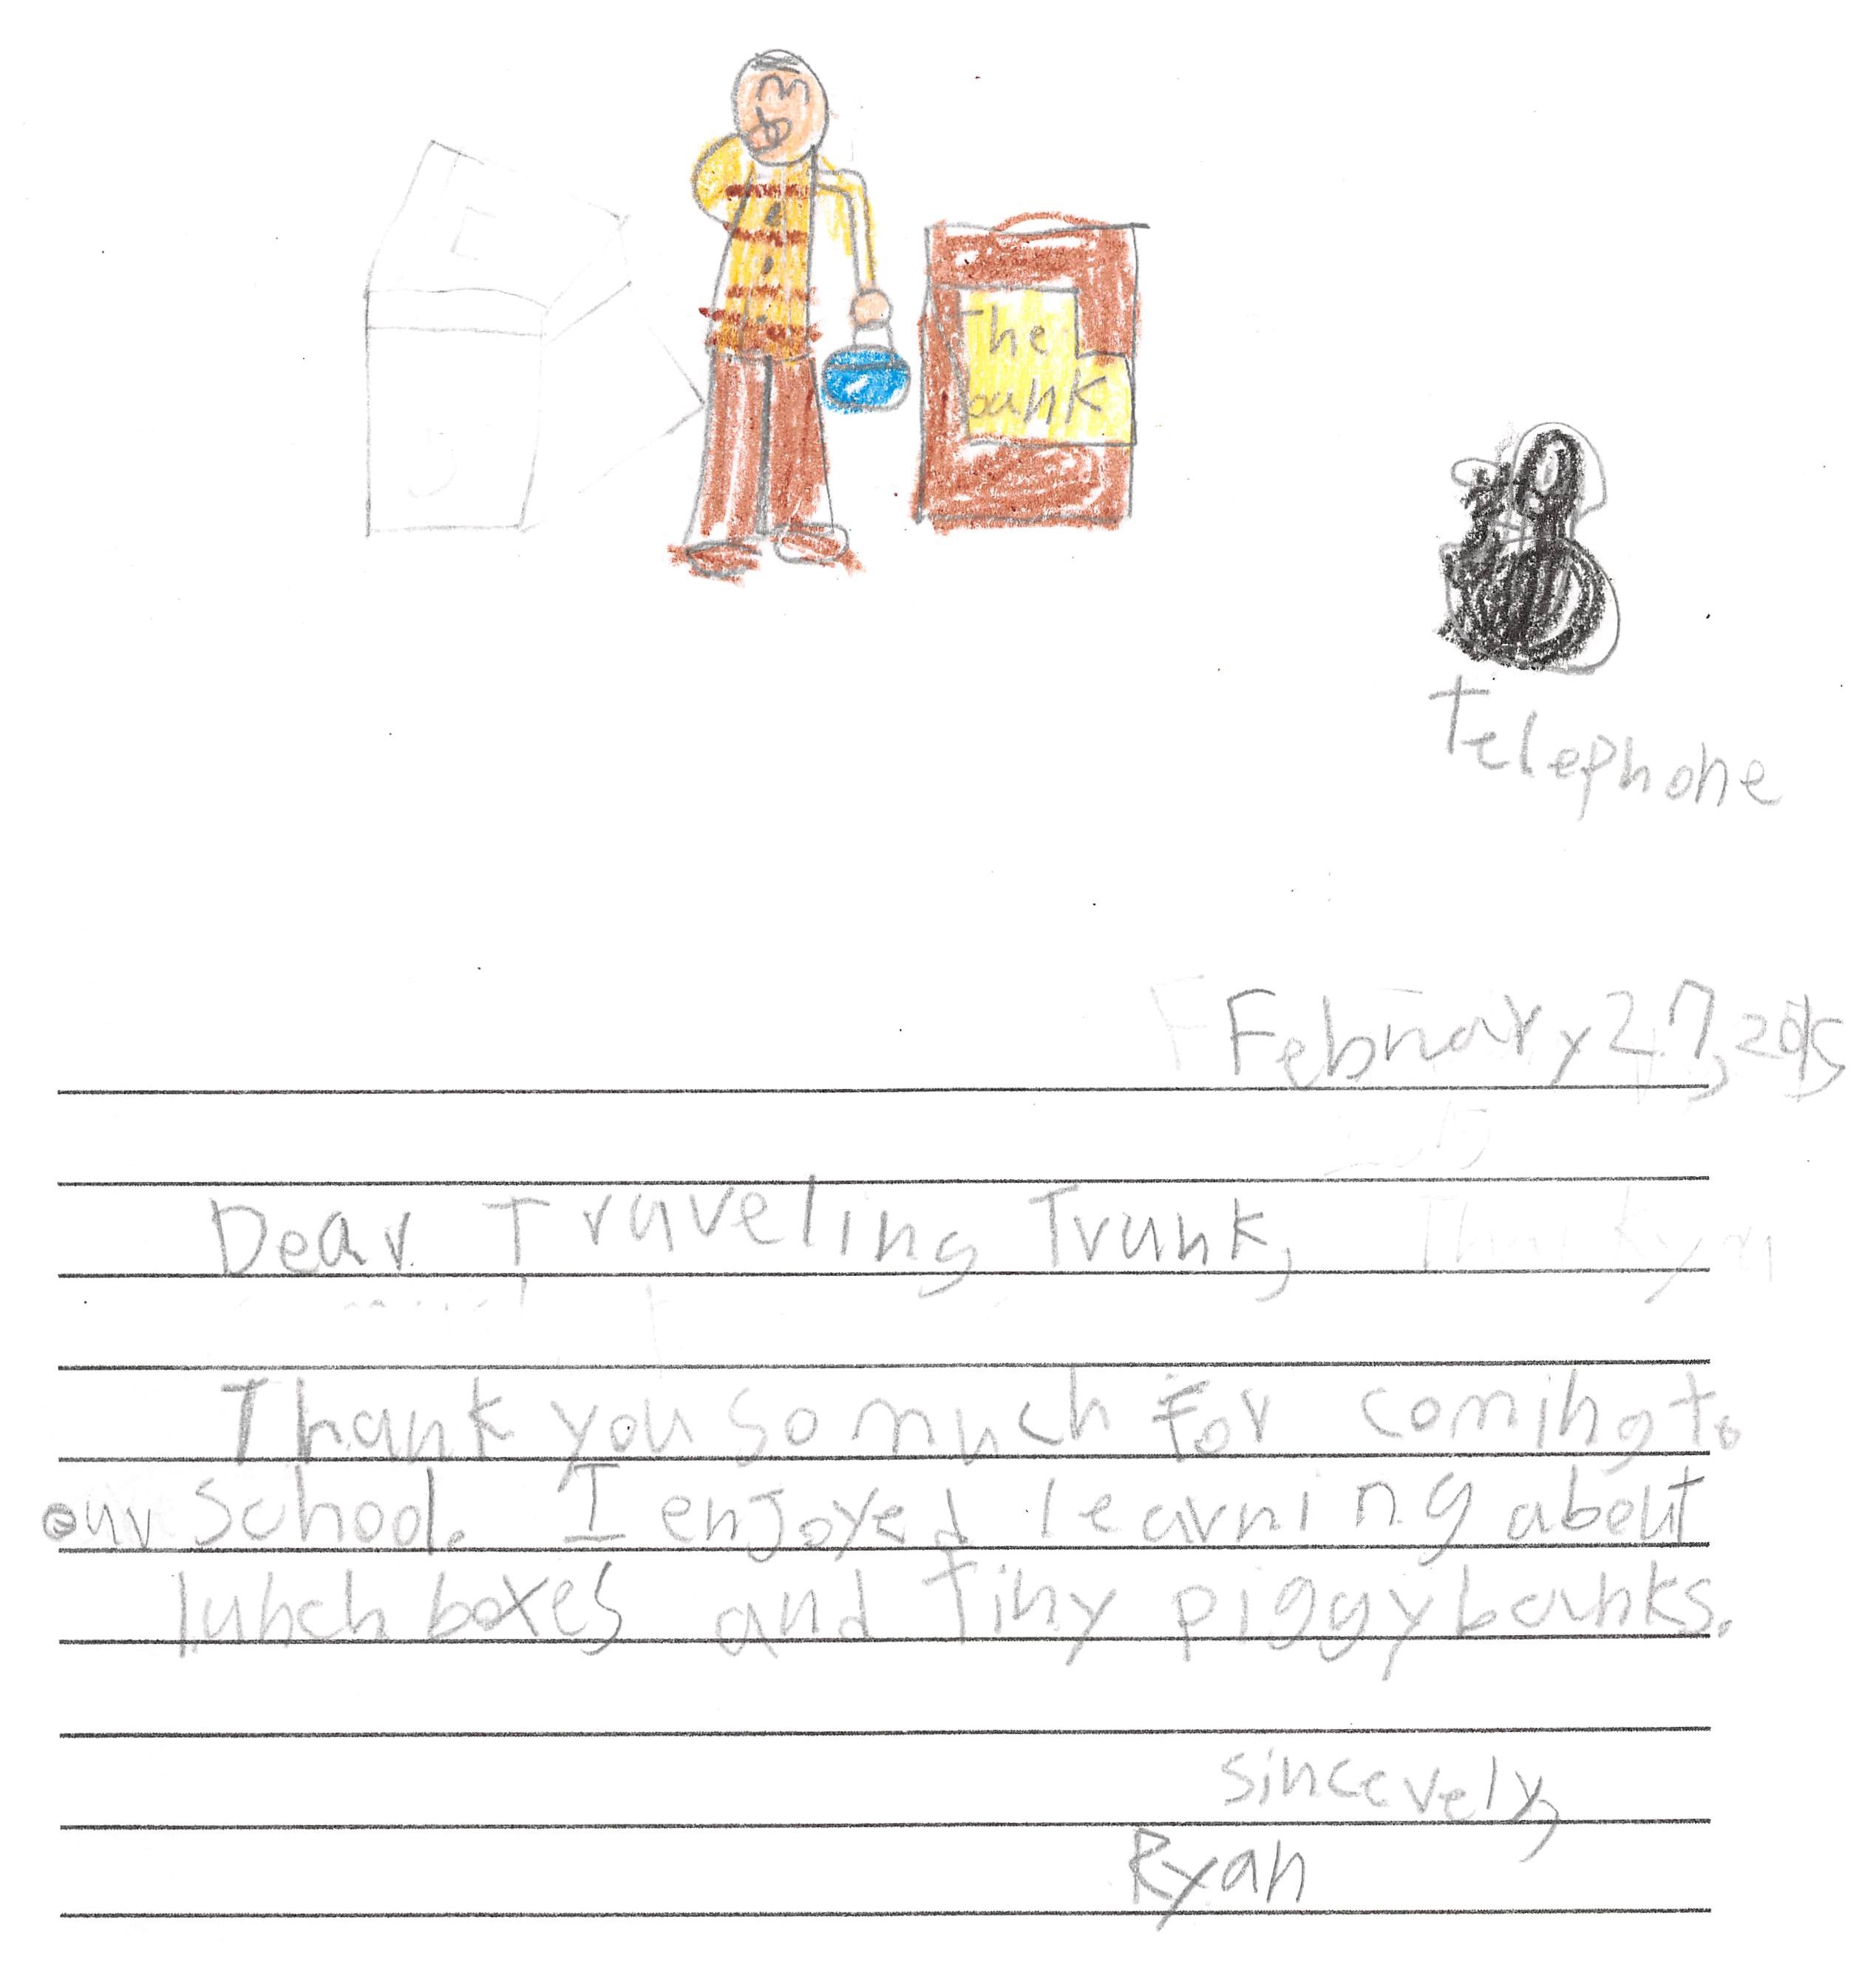 The
bank
telephone
February 27, 2015
Dear Traveling Trunk,
Thank you so much for coming to
our school. I enjoyed learning about
lunch boxes and tiny piggy banks.
sincerely,
Ryan